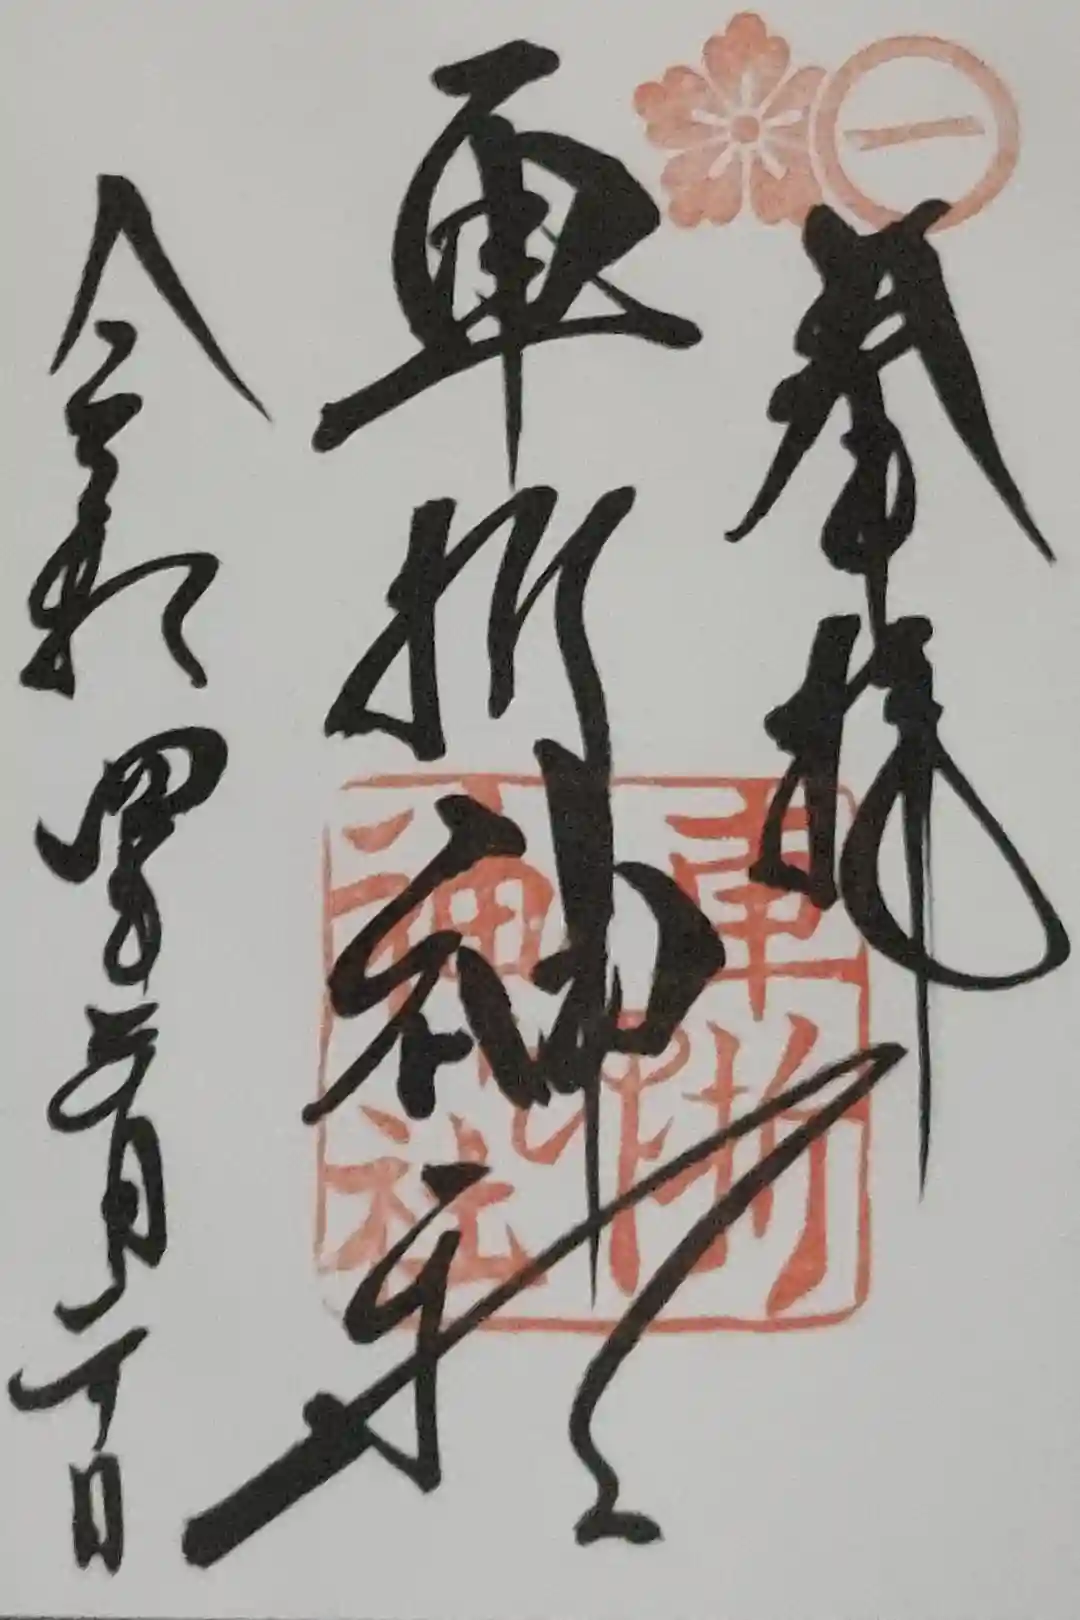 一
奉拝
車折神社
車折
神社
令和四年 月 日